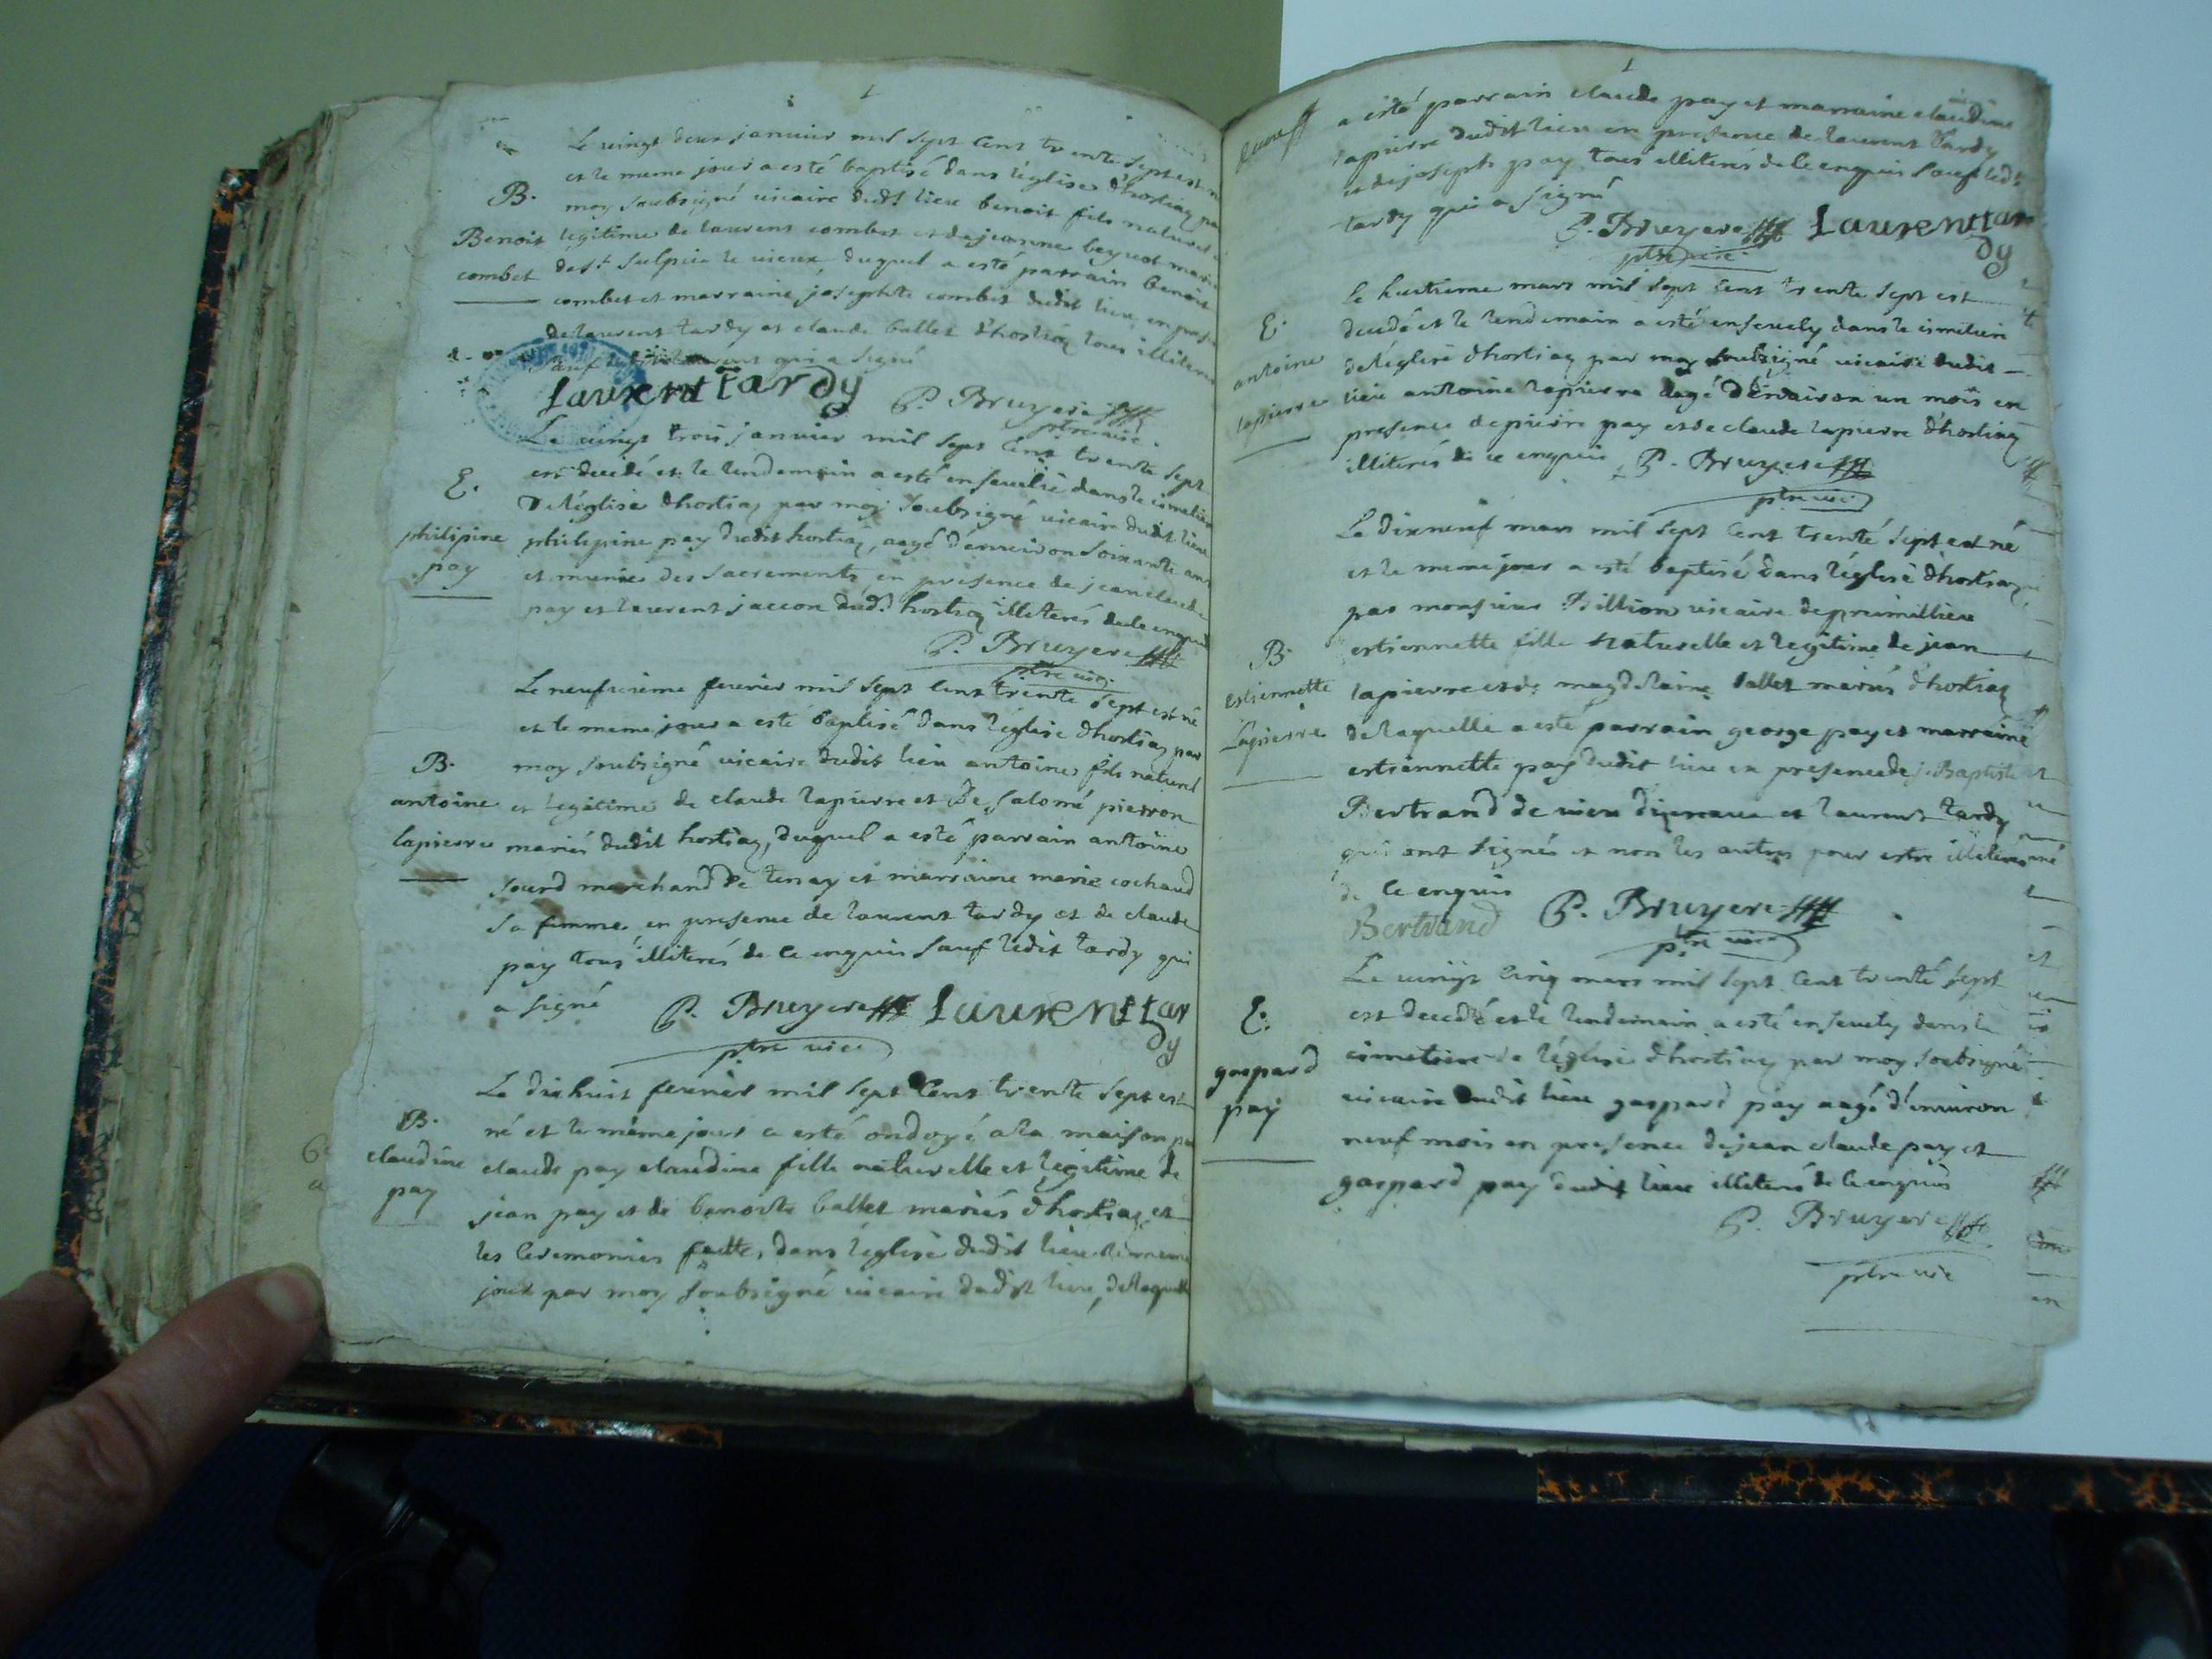 Le vingt deux janvier mil sept cent trente sept est
et le meme jour a esté baptisé dans l'église d'hostiaz
moy soubsigné vicaire dudt lieu benoit fils naturel
B.
Benoit
combet
legitime de laurent combet et de jeanne
de st Sulpice le vieux duquel a esté parrain Benoit
combet et marraine josephte combet dudit lieu en
de laurent tardy et claude ballet d'hostiaz tous
sauf qui a signé
Laurent tardy P. Bruyere
ptre vic.
Le vingt trois janvier mil sept cent trente sept
est decedé et le lendemain a esté ensevelie dans le cimetiere
E.
philipine
pay
de l'église d'hostiaz par moy soubsigné vicaire dudit lieu
philipine pay dudit hostiaz, aagé d'environ soixante ans
et munie des sacrements en presence de jean claude
pay et laurent jaccon dudt hostiaz illiterés de ce enquis
P. Bruyere
ptre vic.
Le neufvieme fevrier mil sept cent trente sept est né
et le meme jour a esté baptisé dans l'église d'hostiaz par
B.
antoine
lapierre
moy soubsigné vicaire dudit lieu antoine fils naturel
et legitime de claude lapierre et de salomé pierron
mariés dudit hostiaz, duquel a esté parrain antoine
sourd marchand de tenay et marraine marie cochaud
sa femme en presence de laurent tardy et de claude
pay tous illiterés de ce enquis sauf ledit tardy qui
a signé P. Bruyere Laurent tar
dy
ptre vic.
Le dix huit fevrier mil sept cent trente sept est
B.
claudine
pay
né et le méme jour a esté ondoyé a la maison par
claude pay claudine fille naturelle et legitime de
jean pay et de benoite ballet mariés d'hostiaz et
les ceremonies faittes dans l'église dudit lieu le meme
jour par moy soubsigné vicaire dudit lieu, de laquelle
a esté parrain claude pay et marraine claudine
lapierre dudit lieu en presence de laurent tardy
et de joseph pay tous illiterés de ce enquis sauf ledt
tardy qui a signé
P. Bruyere Laurent tar
dy
ptre vic.
le huitieme mars mil sept cent trente sept est
E.
antoine
lapierre
decedé et le lendemain a esté ensevely dans le cimetiere
de l'église d'hostiaz par moy soubsigné vicaire dudit
lieu antoine lapierre aagé d'environ un mois en
presence de pierre pay et de claude lapierre d'hostiaz
illiterés de ce enquis P. Bruyere
ptre vic.
Le dix neuf mars mil sept cent trente sept est né
et le meme jour a esté baptisé dans l'église d'hostiaz
par monsieur Billion vicaire de premillieu
B.
estiennette
Lapierre
estiennette fille naturelle et legitime de jean
lapierre et de magdelaine ballet mariés d'hostiaz
de laquelle a esté parrain george pay et marraine
estiennette pay dudit lieu en presence de j. Baptiste
Bertrand de vieu d'izenave et laurent tardy
qui ont signés et non les autres pour estre illiterés
de ce enquis
Bertrand P. Bruyere
ptre vic.
Le vingt cinq mars mil sept cent trente sept
E.
gaspard
pay
est decedé et le lendemain a esté ensevely dans le
cimetiere de l'église d'hostiaz par moy soubsigné
vicaire dudit lieu gaspard pay aagé d'environ
neuf mois en presence de jean claude pay et
gaspard pay dudit lieu illiterés de ce enquis
P. Bruyere
ptre vic